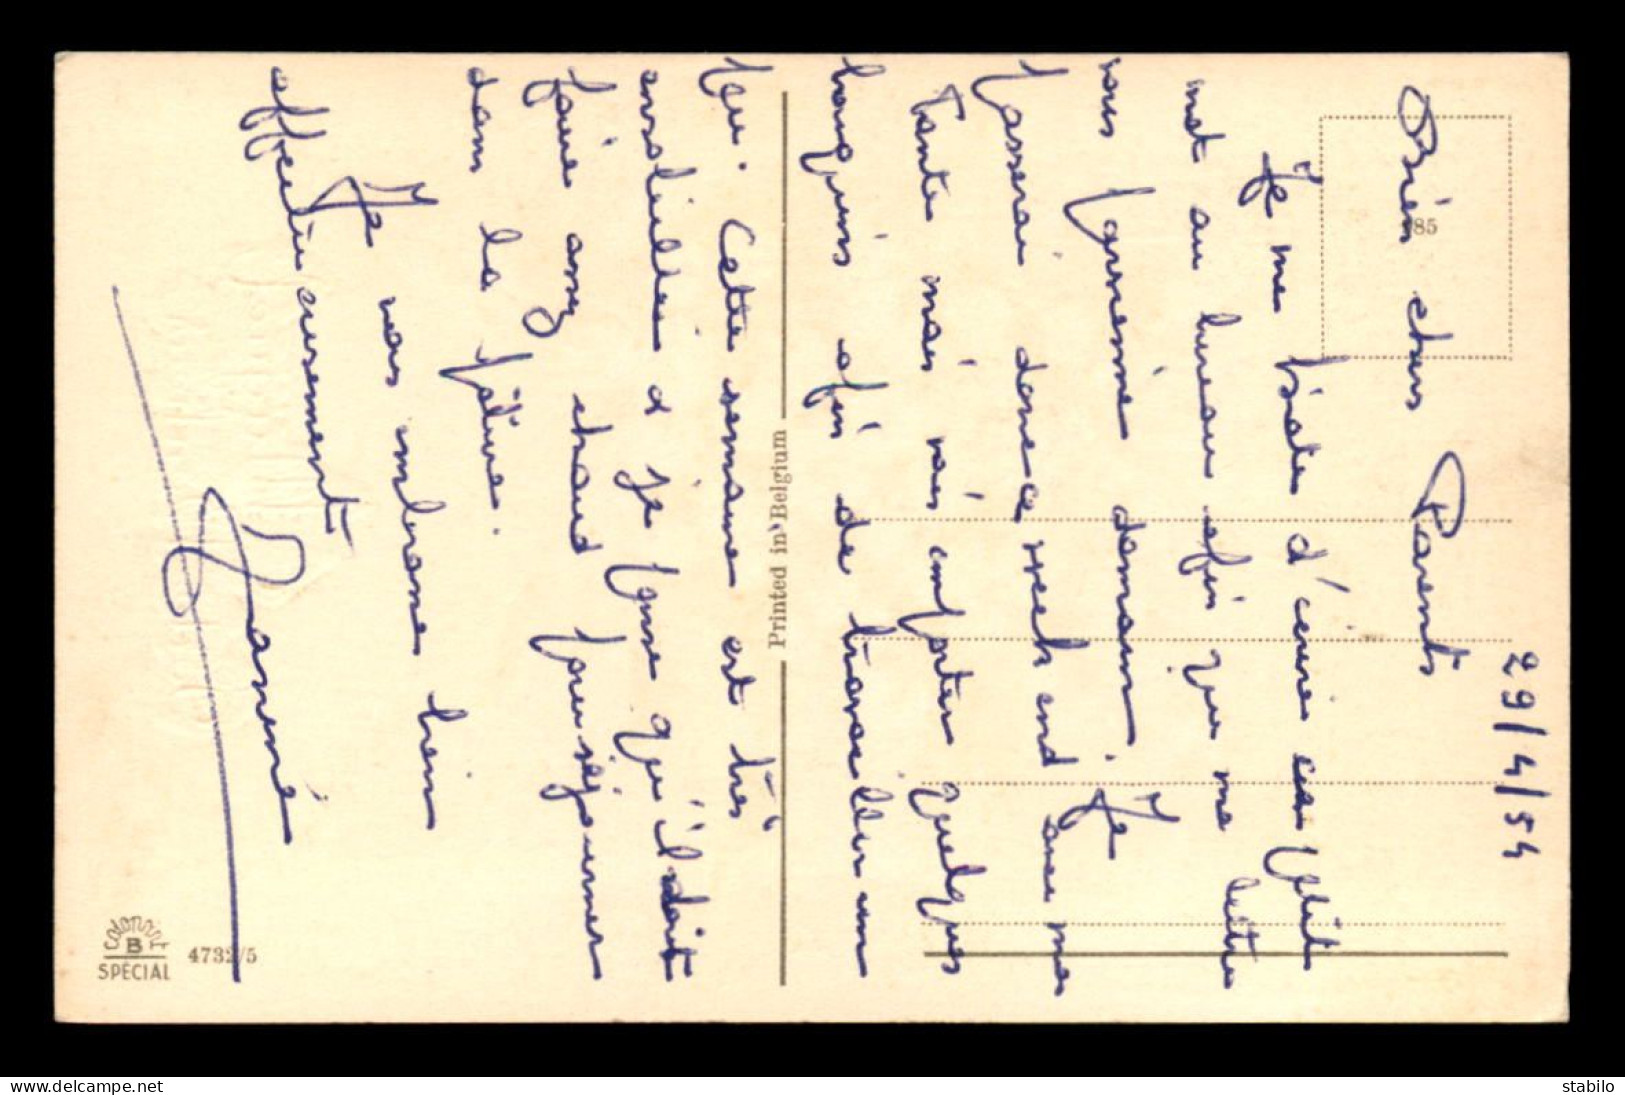 29/4/54
Bien chers Parents
Je me hâte d'écrire ce petit
mot au bureau afin que ma lettre
vous parvienne demain. Je
passerai donc ce week end avec ma
Tante mais vais emporter quelques
bouquins afin de travailler un
peu. Cette semaine est très
ensoleillée & je pense qu'il doit
faire assez chaud pour séjourner
dans la pâture.
Je vous embrasse bien
affectueusement
Janine
Printed in Belgium
85
Colorprint
B
SPECIAL
4732/5
delcampe.net
stabilo